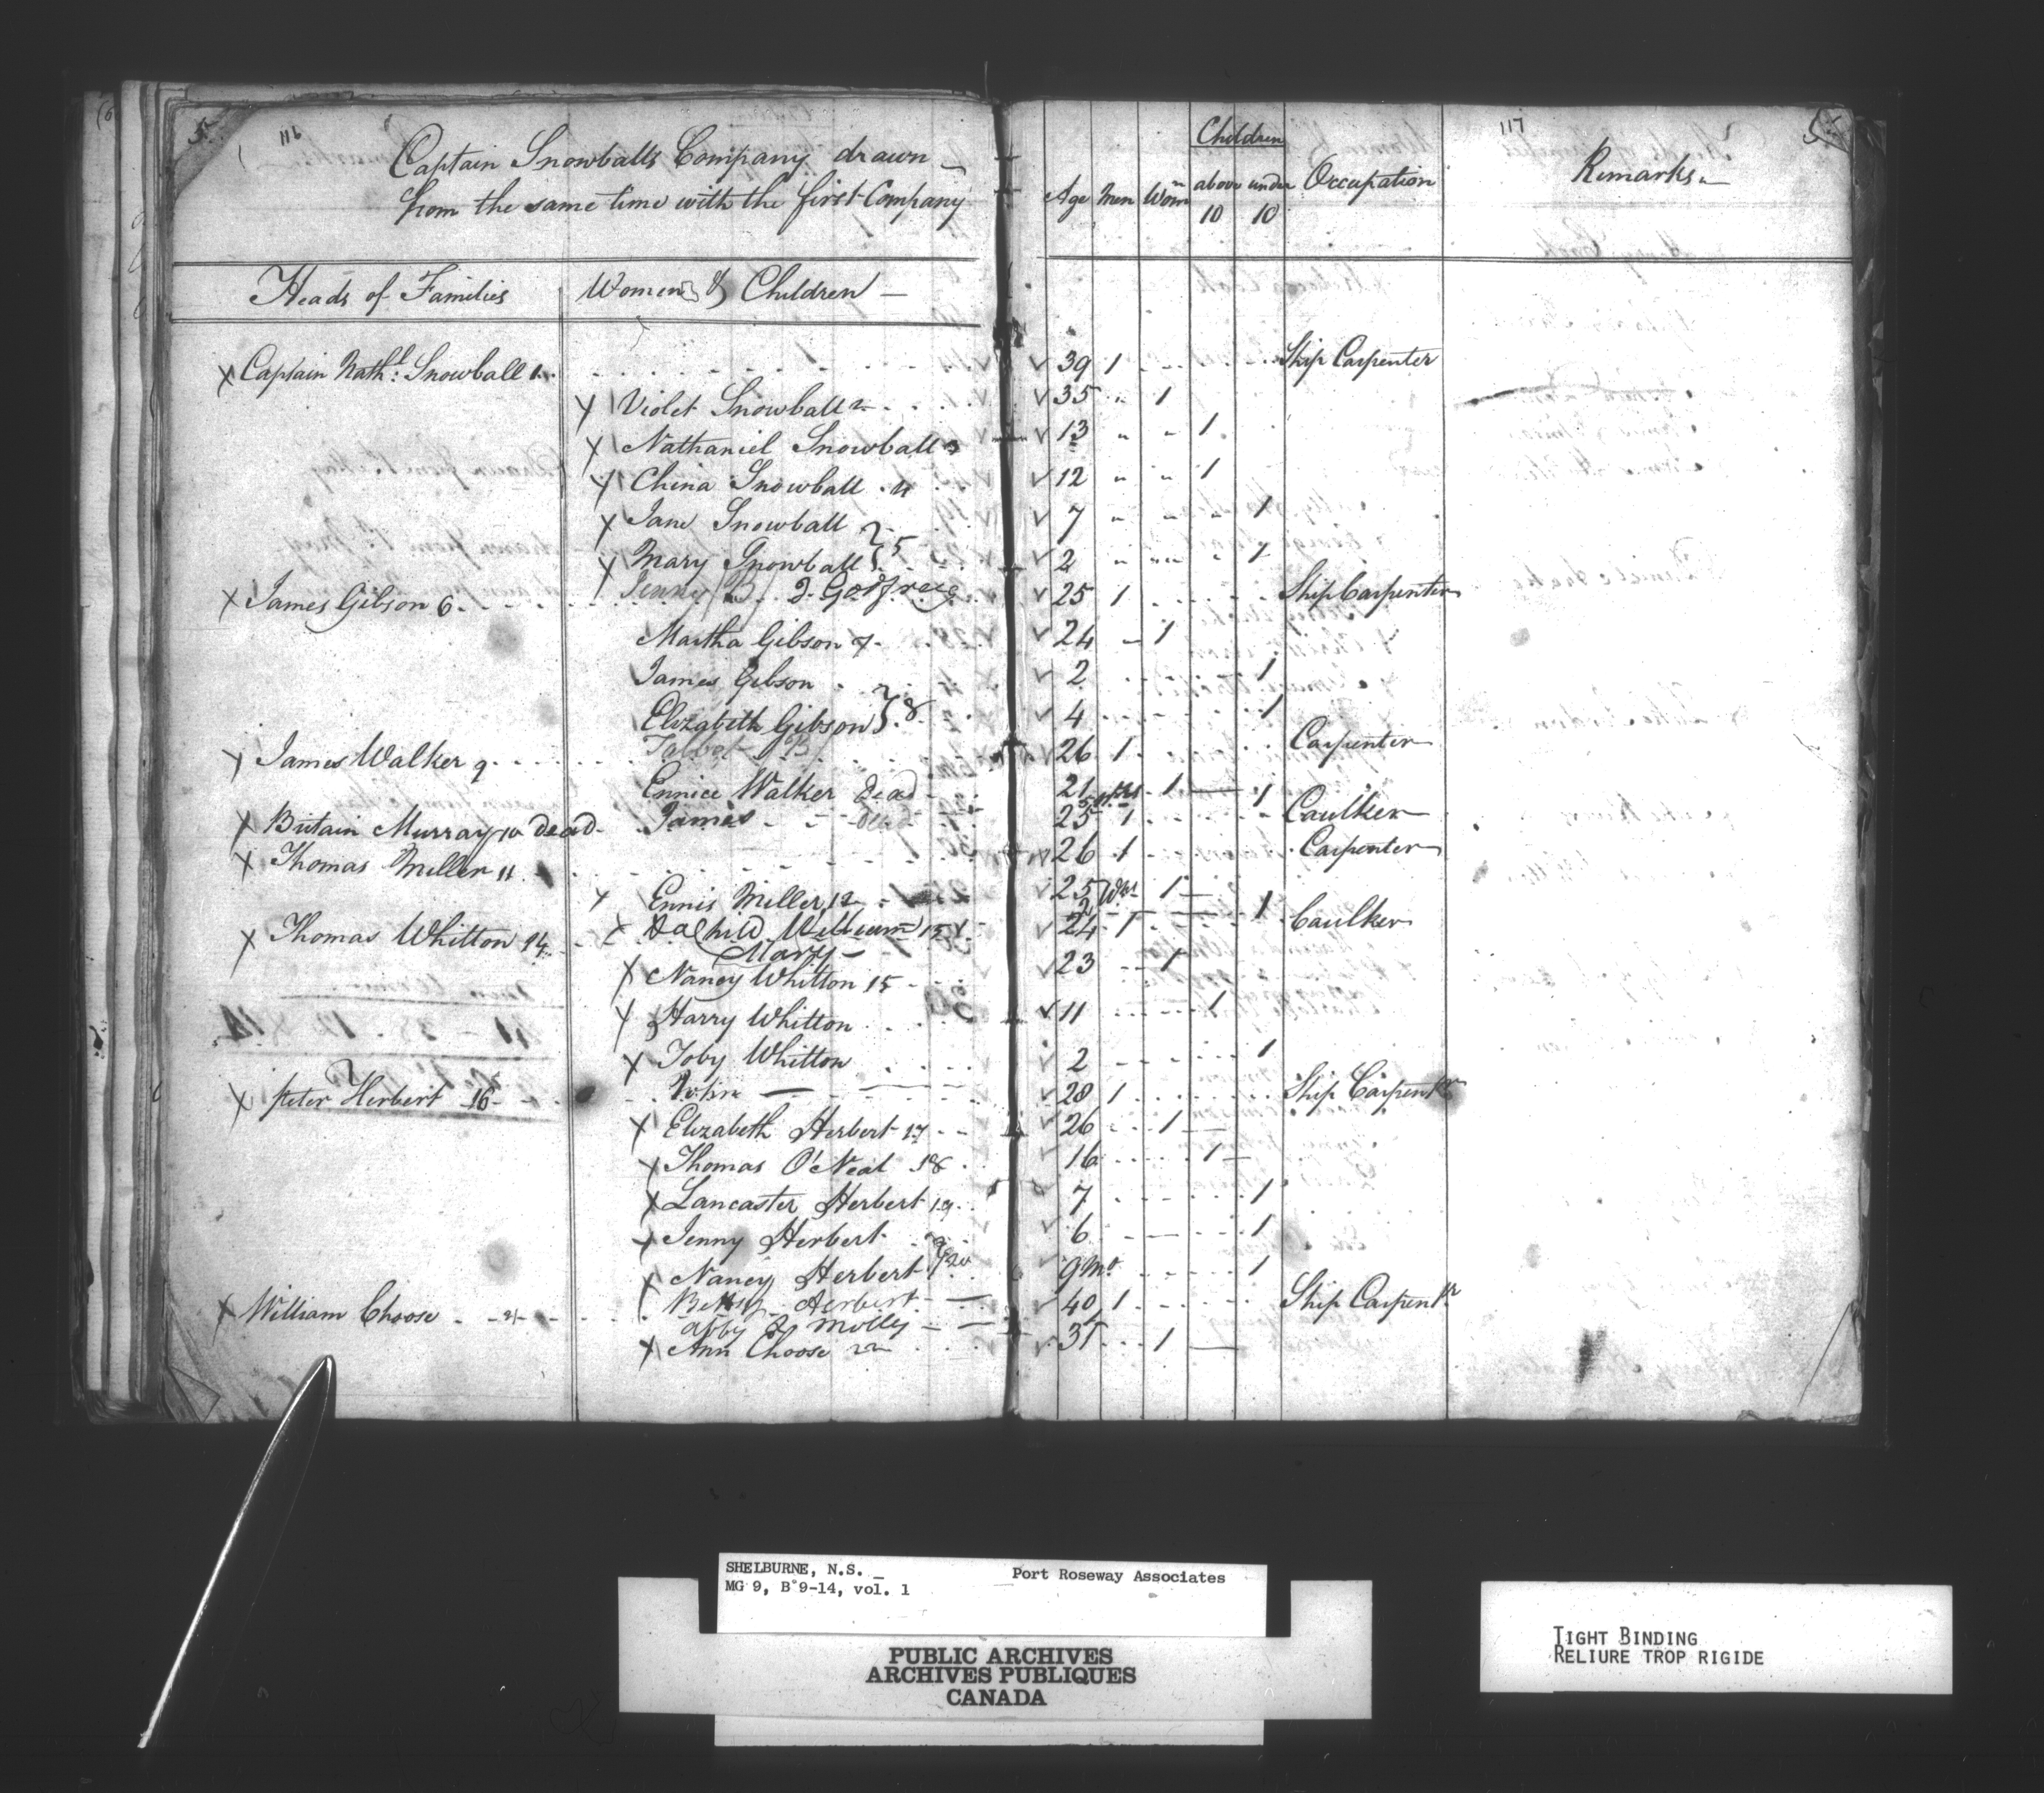 5 116
Captain Snowballs Company drawn
from the same time with the first Company
Heads of Families Women & Children
Captain Nath:l Snowball 1
Violet Snowball 2
Nathaniel Snowball 3
China Snowball 4
Jane Snowball
Mary Snowball } 5
James Gibson 6 Jenny B Godfrey
Martha Gibson 7
James Gibson
Elizabeth Gibson } 8
James Walker 9
Ennice Walker Dead
Britain Murray 10 Dead James Dead
Thomas Miller 11
Ennis Miller 12
Thomas Whitton 14 a Child William 13
Mary
Nancy Whitton 15
Harry Whitton
Toby Whitton
Peter Herbert 16
Elizabeth Herbert 17
Thomas O'Neal 18
Lancaster Herbert 19
Jenny Herbert
Nancy Herbert } 20
William Choose 21 Betsy Herbert
abby & Molly
Ann Choose 22
117 5
Children
Age Men Wom:n above 10 under 10 Occupation Remarks
39 1 Ship Carpenter
35 1
13 1
12 1
7 1
2 1
25 1 Ship Carpenter
24 1
2 1
4 1
26 1 Carpenter
21 1
25 1 1 Caulker
26 1 Carpenter
25 1
2 1
24 1 Caulker
23 1
11 1
2 1
28 1 Ship Carpentr
26 1
16 1
7 1
6 1
9 Mo 1
40 1 Ship Carpentr
31 1
SHELBURNE, N.S. Port Roseway Associates
MG 9, B 9-14, vol. 1
PUBLIC ARCHIVES
ARCHIVES PUBLIQUES
CANADA
TIGHT BINDING
RELIURE TROP RIGIDE